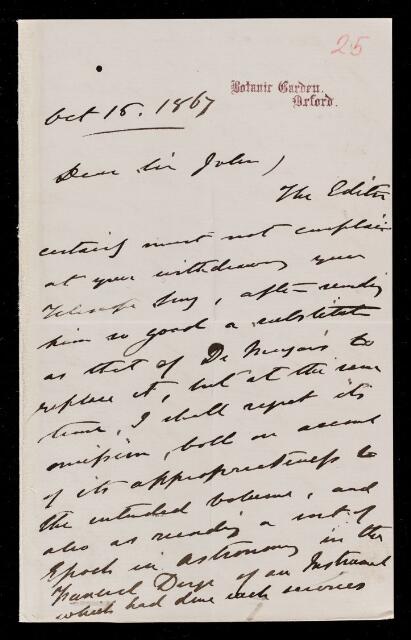 25
Botanic Garden,
Oxford.
Oct 15. 1867
Dear Sir John,
The Editor
certainly must not complain
at your withdrawing your
Telescope Song, after sending
him so good a substitute
as that of De Morgan's to
replace it, but at the same
time, I shall regret its
omission, both on account
of its appropriateness to
the intended volume, and
also as marking a sort of
Epoch in astronomy in the
Funeral Dirge of an Instrument
which had done such services